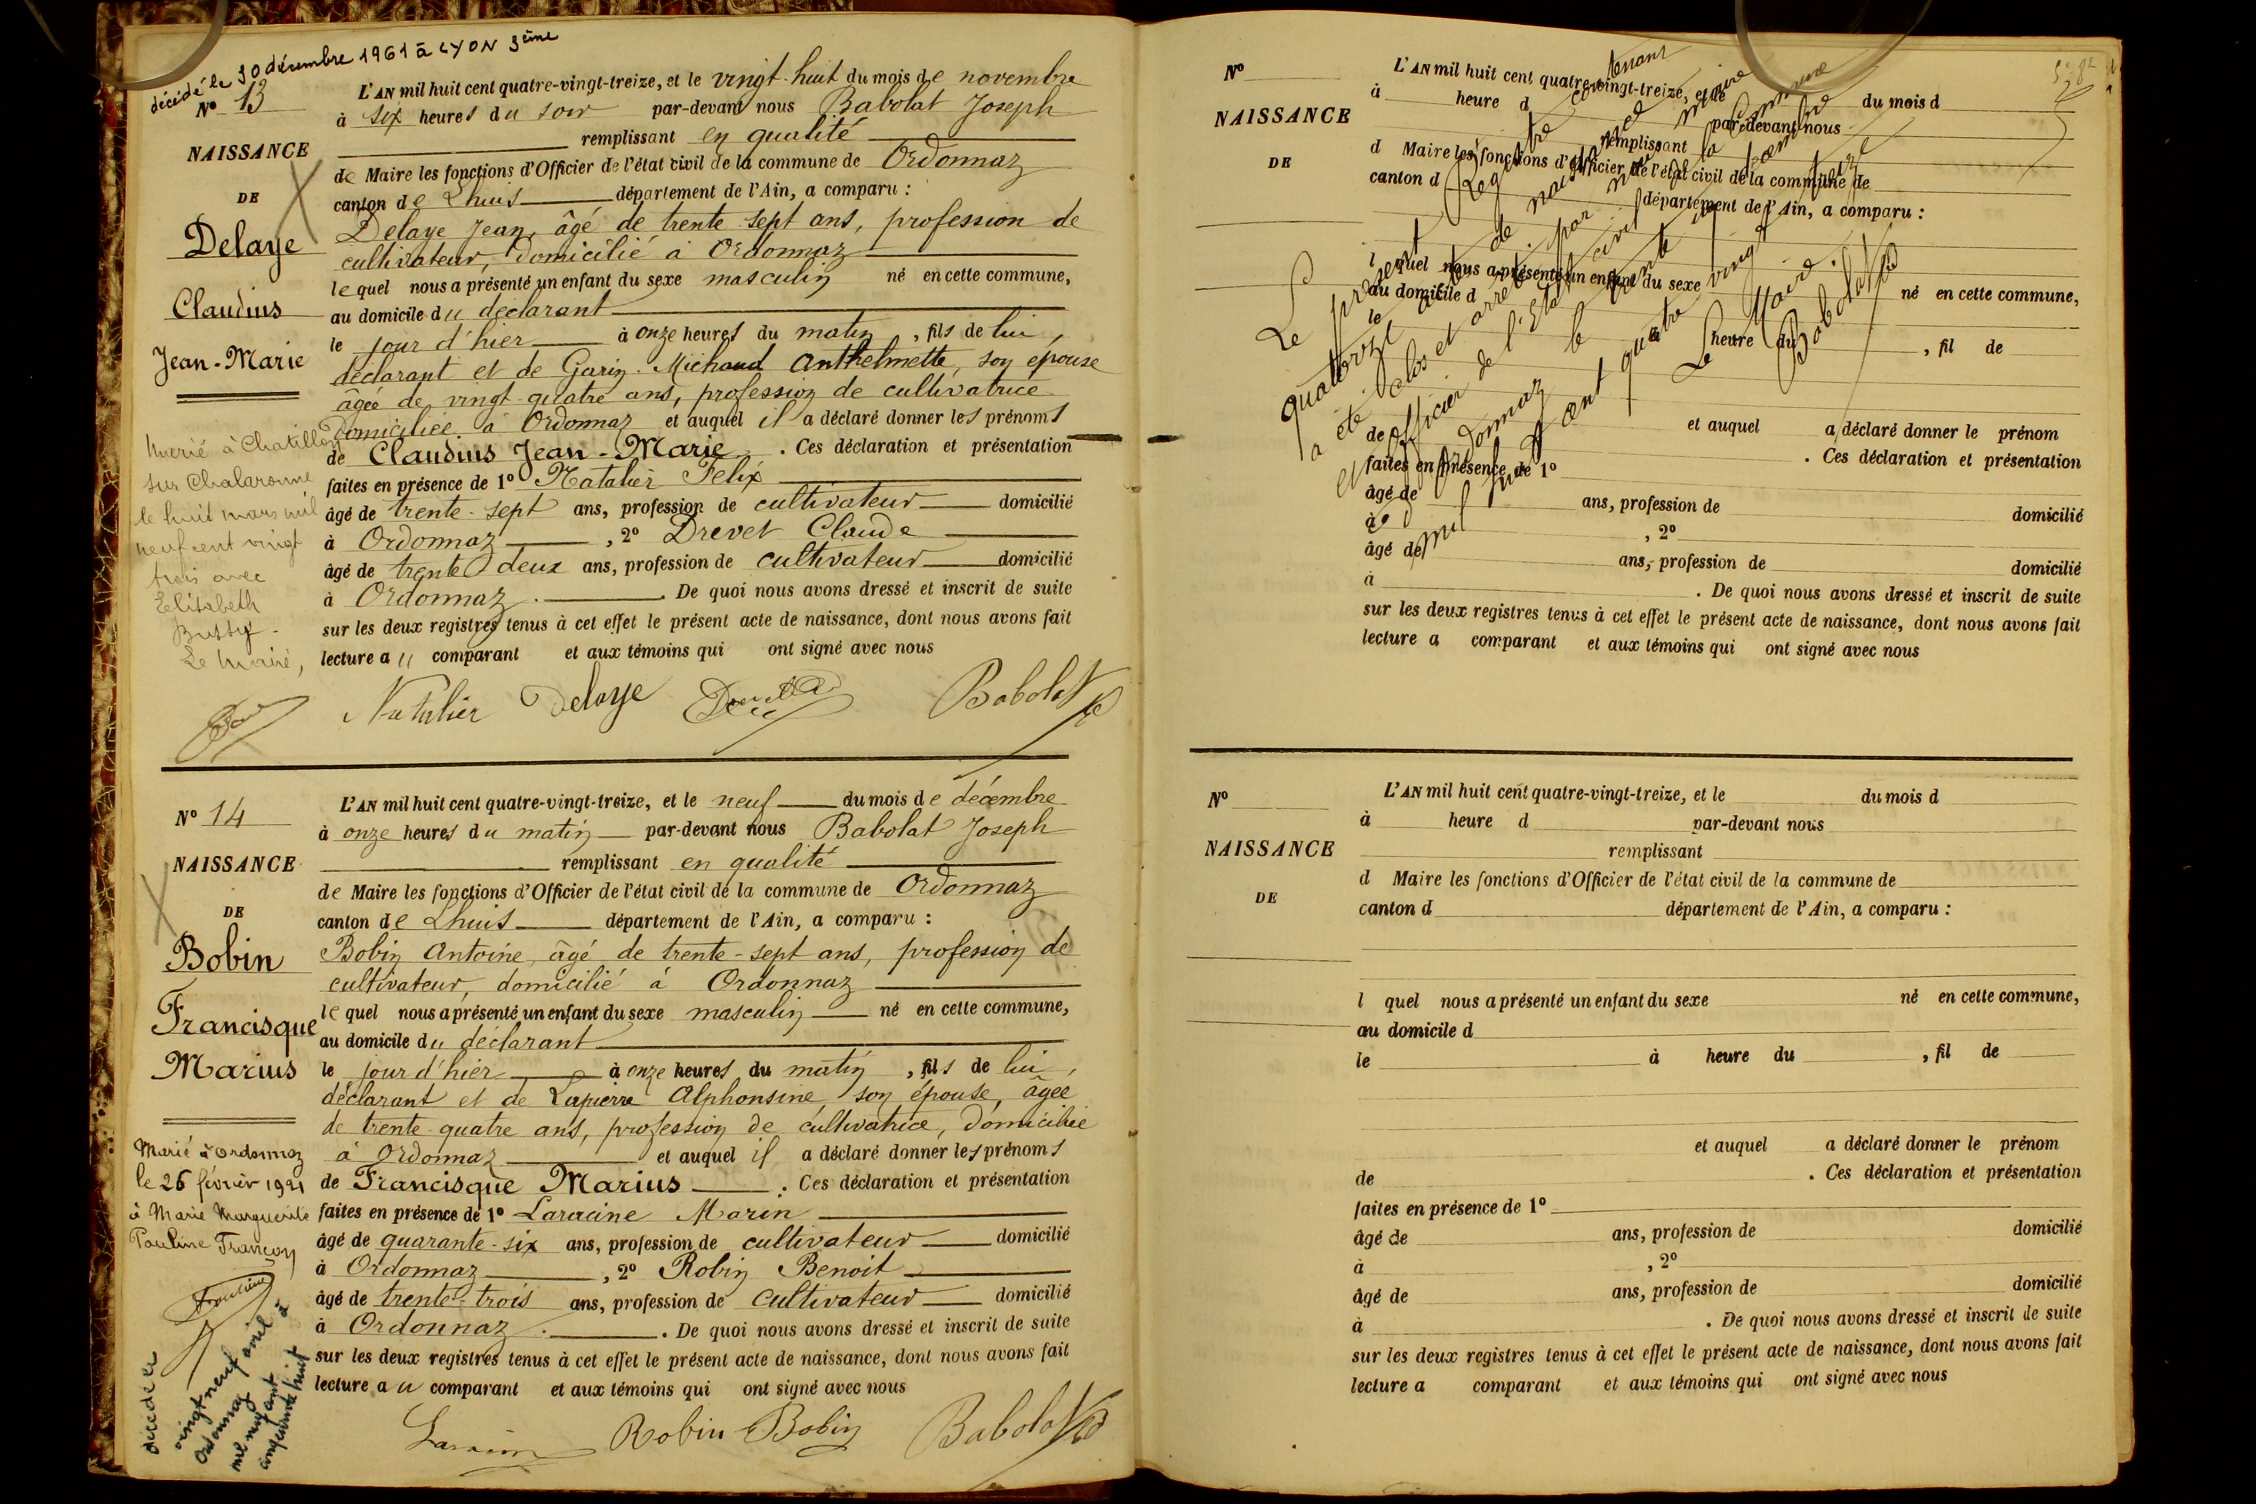 décédé le 30 décembre 1961 à LYON 3ème
Nº 13
NAISSANCE
DE
Delaye
Claudius
Jean-Marie
Marié à Chatillon
sur Chalaronne
le huit mars mil
neuf cent vingt
trois avec
Elisabeth
Le Maire,
L'AN mil huit cent quatre-vingt-treize, et le vingt-huit du mois de novembre
à six heures du soir par-devant nous Babolat Joseph
remplissant en qualité
de Maire les fonctions d'Officier de l'état civil de la commune de Ordonnaz
canton de Lhuis département de l'Ain, a comparu :
Delaye Jean, âgé de trente sept ans, profession de
cultivateur, domicilié à Ordonnaz
lequel nous a présenté un enfant du sexe masculin né en cette commune,
au domicile du déclarant
le jour d'hier à onze heures du matin, fils de lui,
déclarant et de Garin-Michaud Anthelmette, son épouse
âgée de vingt-quatre ans, profession de cultivatrice
domiciliée à Ordonnaz et auquel il a déclaré donner les prénoms
de Claudius Jean-Marie. Ces déclaration et présentation
faites en présence de 1º Natalier Félix
âgé de trente-sept ans, profession de cultivateur domicilié
à Ordonnaz, 2º Drevet Claude
âgé de trente deux ans, profession de cultivateur domicilié
à Ordonnaz. De quoi nous avons dressé et inscrit de suite
sur les deux registres tenus à cet effet le présent acte de naissance, dont nous avons fait
lecture au comparant et aux témoins qui ont signé avec nous
Natalier Delaye Babolat
Nº 14
NAISSANCE
DE
Bobin
Francisque
Marius
Marié à Ordonnaz
le 26 février 1921
à Marie Marguerite
Pauline Françon
décédé le
vingt neuf avril à
Ordonnaz
mil neuf cent
cinquante huit
L'AN mil huit cent quatre-vingt-treize, et le neuf du mois de décembre
à onze heures du matin par-devant nous Babolat Joseph
remplissant en qualité
de Maire les fonctions d'Officier de l'état civil de la commune de Ordonnaz
canton de Lhuis département de l'Ain, a comparu :
Bobin Antoine, âgé de trente-sept ans, profession de
cultivateur, domicilié à Ordonnaz
lequel nous a présenté un enfant du sexe masculin né en cette commune,
au domicile du déclarant
le jour d'hier à onze heures du matin, fils de lui,
déclarant et de Lapierre Alphonsine son épouse, âgée
de trente-quatre ans, profession de cultivatrice, domiciliée
à Ordonnaz et auquel il a déclaré donner les prénoms
de Francisque Marius. Ces déclaration et présentation
faites en présence de 1º Laracine Marin
âgé de quarante-six ans, profession de cultivateur domicilié
à Ordonnaz, 2º Robin Benoit
âgé de trente-trois ans, profession de cultivateur domicilié
à Ordonnaz. De quoi nous avons dressé et inscrit de suite
sur les deux registres tenus à cet effet le présent acte de naissance, dont nous avons fait
lecture au comparant et aux témoins qui ont signé avec nous
Robin Bobin Babolat
Nº
NAISSANCE
DE
L'AN mil huit cent quatre-vingt-treize, et le du mois d
à heure d par-devant nous
remplissant
d Maire les fonctions d'Officier de l'état civil de la commune de
canton d département de l'Ain, a comparu :
l quel nous a présenté un enfant du sexe né en cette commune,
au domicile d
le à heure du , fil de
et auquel a déclaré donner le prénom
de . Ces déclaration et présentation
faites en présence de 1º
âgé de ans, profession de domicilié
à , 2º
âgé de ans, profession de domicilié
à . De quoi nous avons dressé et inscrit de suite
sur les deux registres tenus à cet effet le présent acte de naissance, dont nous avons fait
lecture a comparant et aux témoins qui ont signé avec nous
Le présent Registre contenant
quatorze actes de naissance
a été clos et arrêté par nous maire
et officier de l'Etat civil de la commune
d'Ordonnaz le trente un décembre
mil huit cent quatre vingt treize
Le Maire.
Babolat
Nº
NAISSANCE
DE
L'AN mil huit cent quatre-vingt-treize, et le du mois d
à heure d par-devant nous
remplissant
d Maire les fonctions d'Officier de l'état civil de la commune de
canton d département de l'Ain, a comparu :
l quel nous a présenté un enfant du sexe né en cette commune,
au domicile d
le à heure du , fil de
et auquel a déclaré donner le prénom
de . Ces déclaration et présentation
faites en présence de 1º
âgé de ans, profession de domicilié
à , 2º
âgé de ans, profession de domicilié
à . De quoi nous avons dressé et inscrit de suite
sur les deux registres tenus à cet effet le présent acte de naissance, dont nous avons fait
lecture a comparant et aux témoins qui ont signé avec nous